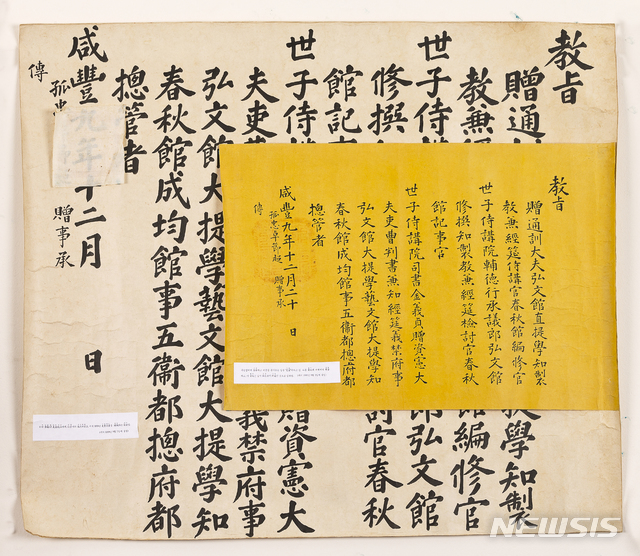 敎旨
贈通 提學知製
敎兼經 館編修官
世子侍講 郞弘文館
修撰 討官春秋
館記事
世子侍講 贈資憲大
夫吏曹 義禁府事
弘文館大提學藝文館大提學知
春秋館成均館事五衞都摠府都
摠管者
咸豐九年十二月 日
孤忠 贈事承
傳
敎旨
贈通訓大夫弘文館直提學知製
敎兼經筵侍講官春秋館編修官
世子侍講院輔德行承議郎弘文館
修撰知製敎兼經筵檢討官春秋
館記事官
世子侍講院司書金義貞贈資憲大
夫吏曹判書兼知經筵義禁府事
弘文館大提學藝文館大提學知
春秋館成均館事五衞都摠府都
摠管者
咸豐九年十二月二十 日
孤忠卓節 贈事承
傳
NEWSIS